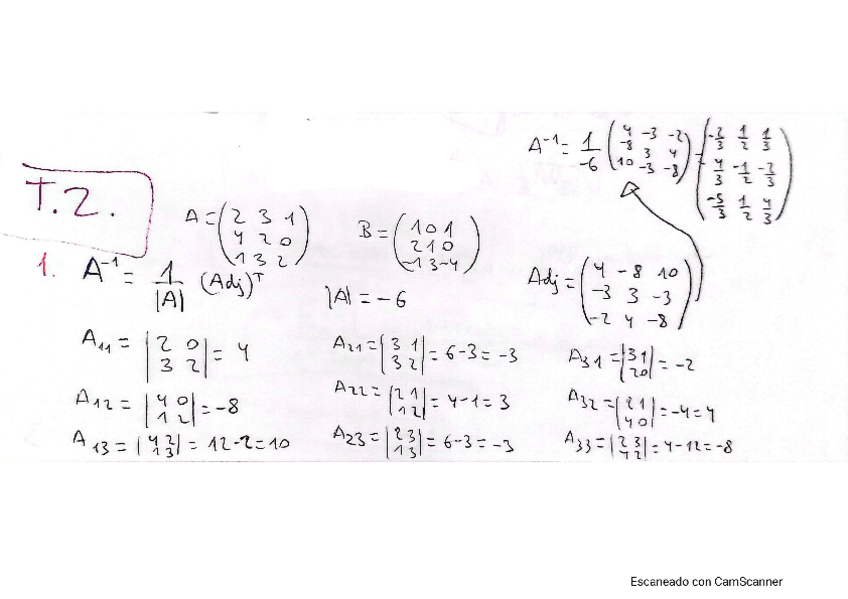 T.2.
A = (2 3 1
4 2 0
1 3 2)
B = (1 0 1
2 1 0
-1 3 -4)
A⁻¹ = 1/-6 (4 -3 -2
-8 3 4
10 -3 -8) = (-2/3 1/2 1/3
4/3 -1/2 -2/3
-5/3 1/2 4/3)
1. A⁻¹ = 1/|A| (Adj)ᵀ
|A| = -6
Adj = (4 -8 10
-3 3 -3
-2 4 -8)
A₁₁ = |2 0
3 2| = 4
A₂₁ = |3 1
3 2| = 6-3 = -3
A₃₁ = |3 1
2 0| = -2
A₁₂ = |4 0
1 2| = -8
A₂₂ = |2 1
1 2| = 4-1 = 3
A₃₂ = |2 1
4 0| = -4 = 4
A₁₃ = |4 2
1 3| = 12-2 = 10
A₂₃ = |2 3
1 3| = 6-3 = -3
A₃₃ = |2 3
4 2| = 4-12 = -8
Escaneado con CamScanner